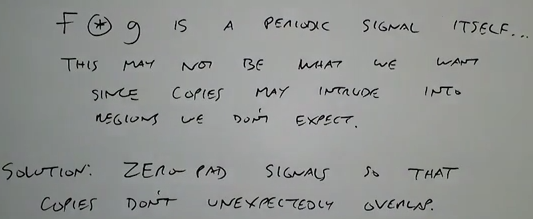 F ⊛ g IS A PERIODIC SIGNAL ITSELF...
THIS MAY NOT BE WHAT WE WANT
SINCE COPIES MAY INTRUDE INTO
REGIONS WE DON'T EXPECT.
SOLUTION: ZERO-PAD SIGNALS SO THAT
COPIES DON'T UNEXPECTEDLY OVERLAP.